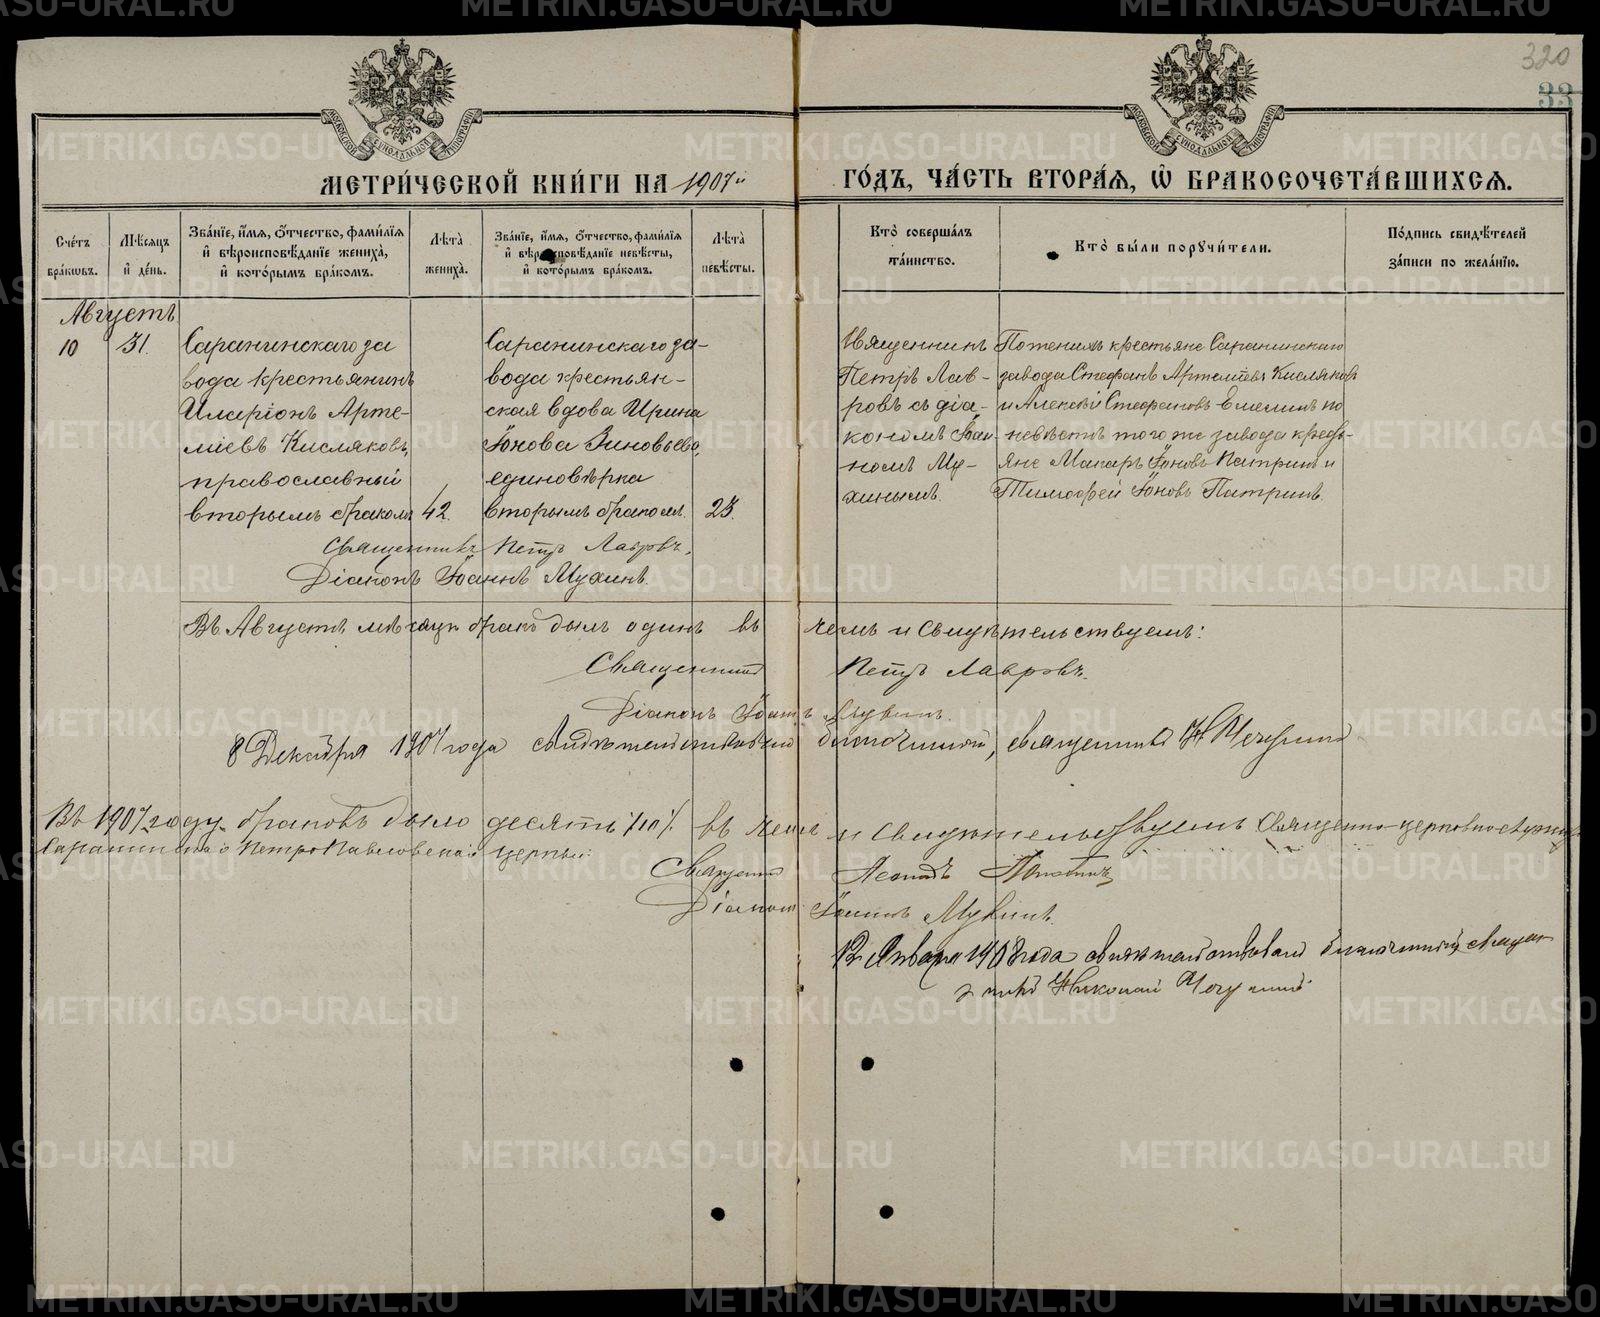 320
33
МОСКОВСКОЙ СѴНОДАЛЬНОЙ ТИПОГРАФІИ
МОСКОВСКОЙ СѴНОДАЛЬНОЙ ТИПОГРАФІИ
МЕТРИ́ЧЕСКОЙ КНИ́ГИ НА 1907й
ГО́ДЪ, ЧА́СТЬ ВТОРА́Я, Ѡ҆ БРАКОСОЧЕТА́ВШИХСЯ.
Сче́тъ бра́кѡвъ.
Мѣ́сяцъ и҆ де́нь.
Зва́нїе, и҆́мя, ѻ҆́тчество, фами́лїя и҆ вѣроисповѣ́данїе жениха̀, и҆ кото́рымъ бра́комъ.
Лѣ́та̀ жениха̀.
Зва́нїе, и҆́мя, ѻ҆́тчество, фами́лїя и҆ вѣроисповѣ́данїе невѣ́сты, и҆ кото́рымъ бра́комъ.
Лѣ́та̀ невѣ́сты.
Кто̀ соверша́лъ та́инство.
Кто̀ бы́ли порꙋчи́тели.
По́дпись свидѣ́телей за́писи по жела́нїю.
Августъ
10
31.
Саранинскаго за
вода крестьянинъ
Иларіонъ Арте-
міевъ Кисляковъ,
православный
вторымъ бракомъ
42.
Саранинскаго за-
вода крестьян-
ская вдова Ирина
Іонова Зиновьева,
единовѣрка
вторымъ бракомъ.
23.
Священникъ
Петръ Лав-
ровъ съ діа-
кономъ Іоан-
номъ Му-
хинымъ.
По женихѣ крестьяне Саранинскаго
завода Стефанъ Артеміевъ Кисляковъ
и Алексѣй Стефановъ Емелинъ по
невѣстѣ того же завода кресть-
яне Макаръ Іоновъ Патринъ и
Тимофей Іоновъ Патринъ.
Священникъ Петръ Лавровъ.
Діаконъ Іоаннъ Мухинъ.
Въ Августѣ мѣсяцѣ бракъ былъ одинъ въ чемъ и свидѣтельствуемъ:
Священникъ Петръ Лавровъ.
Діаконъ Іоаннъ Мухинъ.
8 Декабря 1907 года свидѣтельствовалъ благочинный, священникъ Н Чечулинъ
Въ 1907 году браковъ было десять /10/. въ чемъ и свидѣтельствуемъ Священно-церковнослужит
Саранинской Петропавловской церкви:
Священникъ Леонидъ
Діаконъ Іоаннъ Мухинъ
12 Января 1908 года свидѣтельствовалъ благочинный, священ
никъ Николай Чечулинъ
METRIKI.GASO-URAL.RU